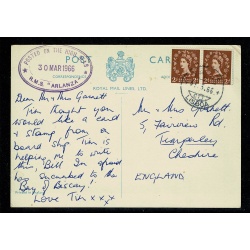 POSTED ON THE HIGH SEAS
30 MAR 1966
R.M.S. "ARLANZA"
POST CARD
ROYAL MAIL LINES, LTD.
Dear Mr & Mrs Garnett
Tim thought you
would like a card
& stamp from a
board ship Tim is
helping me to write
this, Bill I'm afraid
has succumbed to the
Bay of Biscay!
Love Tim x x x
Mr & Mrs Garnett
5, Fairview Rd.
Tarporley
Cheshire
ENGLAND